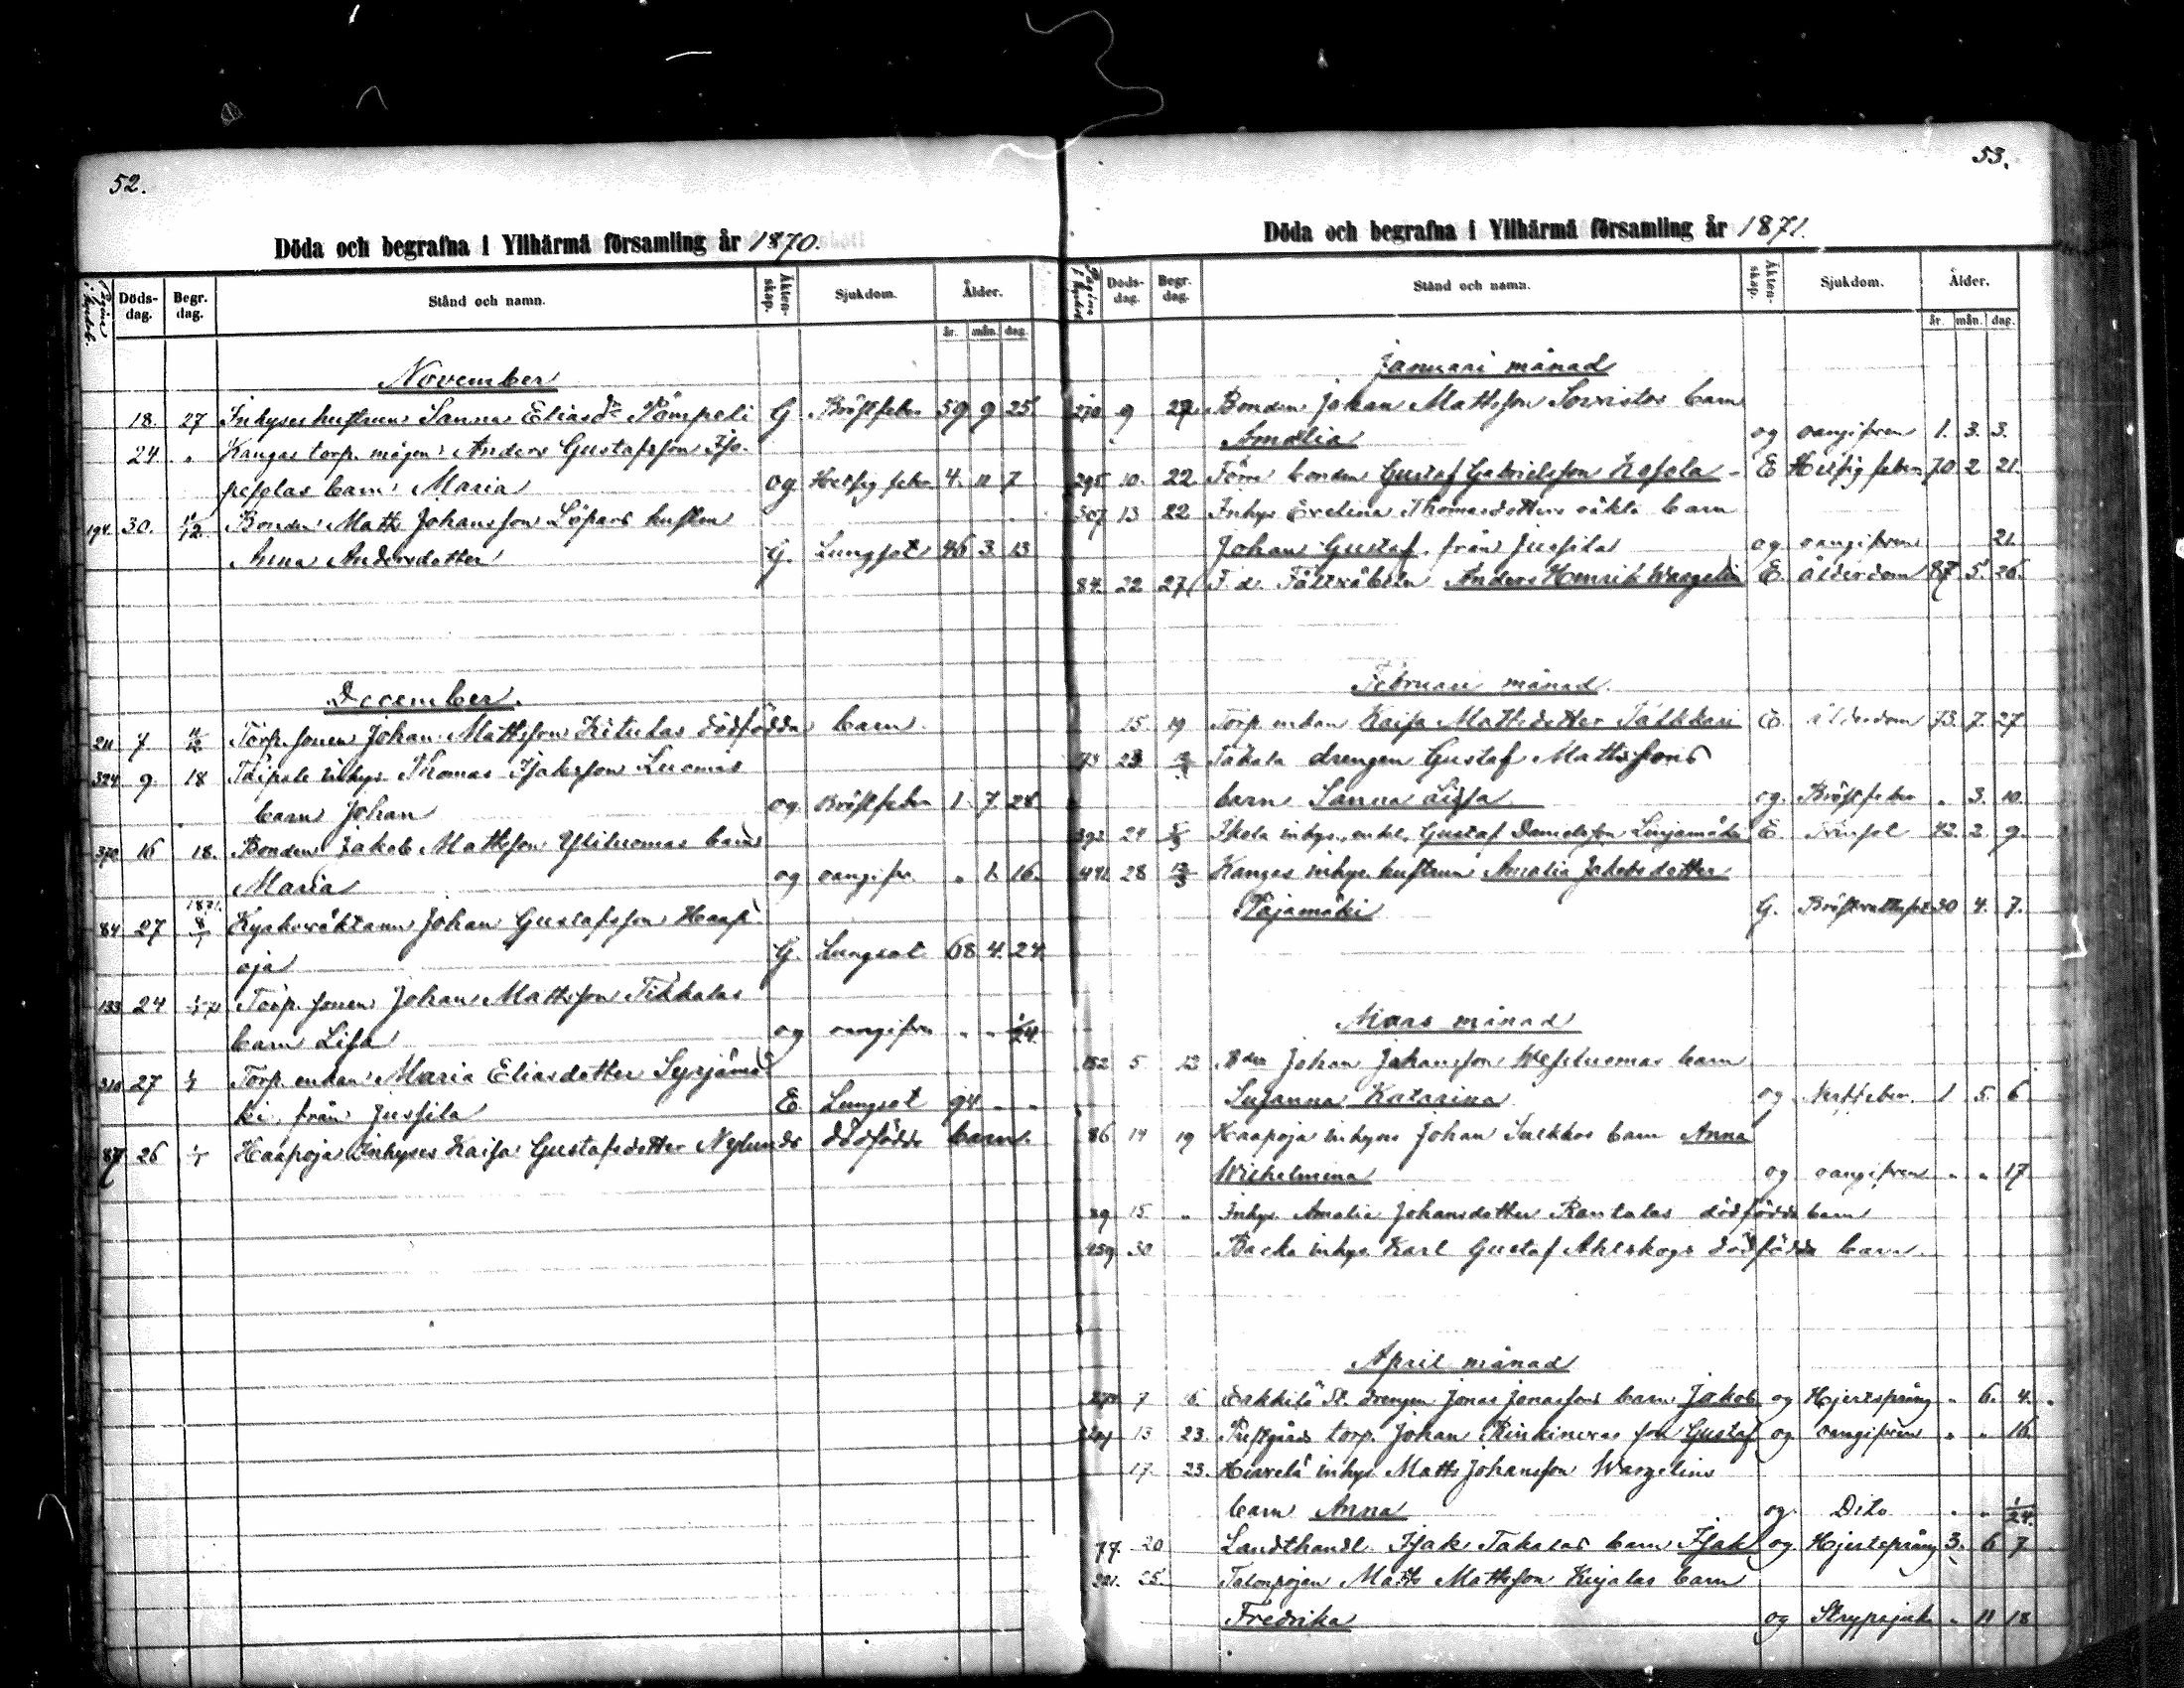 52.
Döda och begrafna i Yllhärmä församling år 1870.
Döds-dag. Begr. dag. Stånd och namn. Äkten-skap. Sjukdom. Ålder.
år. mån. dag.
November
18. 27 Inhyses hustrun Sanna Eliasdr Pömpeli G. Bröstfeber 59 9 25
24. " Kangas torp. mågen Anders Gustafsson
barn Maria og Hetsig feber 4. 11 7
194 30. 11/12 Bonden Matts Johansson Löpars hustru
Anna Andersdotter G. Lungsot 46 3 13
December
211 7 11/12 Torp. sonen Johan Mattsson Kitulas dödfödda barn
324 9 18 Taipale inhys Thomas Isaksson Luomas
barn Johan og Bröstfeber 1. 7. 28.
370 16 18. Bonden Jakob Mattsson Yliluomas barn
Maria og oangifv. " 1. 16.
1871.
84 27 8/1 Kyrkoväktaren Johan Gustafsson Haap
oja G. Lungsot 68. 4. 24.
133 24 Torp. sonen Johan Mattsson Tikkalas
barn Lisa og oangifven " " 1/24
27 1/1 Torp. enkan Maria Eliasdotter Syrjämä
ki från Jussila E. Lungsot 94 " "
87 26 1/1 Haapoja Inhyses Kaisa Gustafsdotter Nylunds dödfödde barn.
53.
Döda och begrafna i Yllhärmä församling år 1871.
Pagina i kyrkob. Döds-dag. Begr. dag. Stånd och namn. Äkten-skap. Sjukdom. Ålder.
år. mån. dag.
Januari månad
270 9 22 Bonden Johan Mattsson Sorvistos barn
Amalia og oangifven 1. 3. 3.
295 10. 22 Förre bonden Gustaf Gabrielsson Kosola E Hetsig feber 70 2 21.
307 13 22 Inhys Evelina Thomasdotters oäkta barn
Johan Gustaf från Jussila og oangifven 21.
84. 22 27 F. d. Fältväbeln Anders Henrik Wargelin E. ålderdom 87 5. 26.
Februari månad.
15. 19 Torp. enkan Kaisa Mattsdotter Tälkkäri E. ålderdom 73. 7. 27
73 23 12/3 Takala drengen Gustaf Mattssons
barn Sanna Lisa og. Bröstfeber " 3. 10.
392 24 5/3 Ikola inhys. enkl. Gustaf Danielsson Linjamäki E. 42. 2. 9.
441 28 12/3 Kangas inhys. hustrun Amalia Jakobsdotter
Pajamäki G. Bröstvattusot 30 4. 7.
Mars månad
152 5 12 Bdn Johan Johansson Westluomas barn
Susanna Katarina og Nervfeber 1 5. 6
86 14 19 Haapoja inhyses Johan Sulkkos barn Anna
Wilhelmina og oangifven " " 17
89 15 " Inhys Amalia Johansdotter Rantalas dödfödda barn
459 30 Backa inhys Karl Gustaf Ahlskogs dödfödda barn
April månad
7 16 drengen Jonas Jonassons barn Jakob og Hjertsprång " 6. 4.
13 23. Prestgårds torp. Johan Rinkinevas son Gustaf og oangifven " " 16.
17. 23. inhys Matts Johansson Wargelins
barn Anna og Dito " " 1/24.
77. 20 Landthandl. Isak Takalas barn Isak og Hjertsprång 3. 6 7
25. Talonpojan Matts Mattsson Kujalas barn
Fredrika og Strypsjuk " 11 18